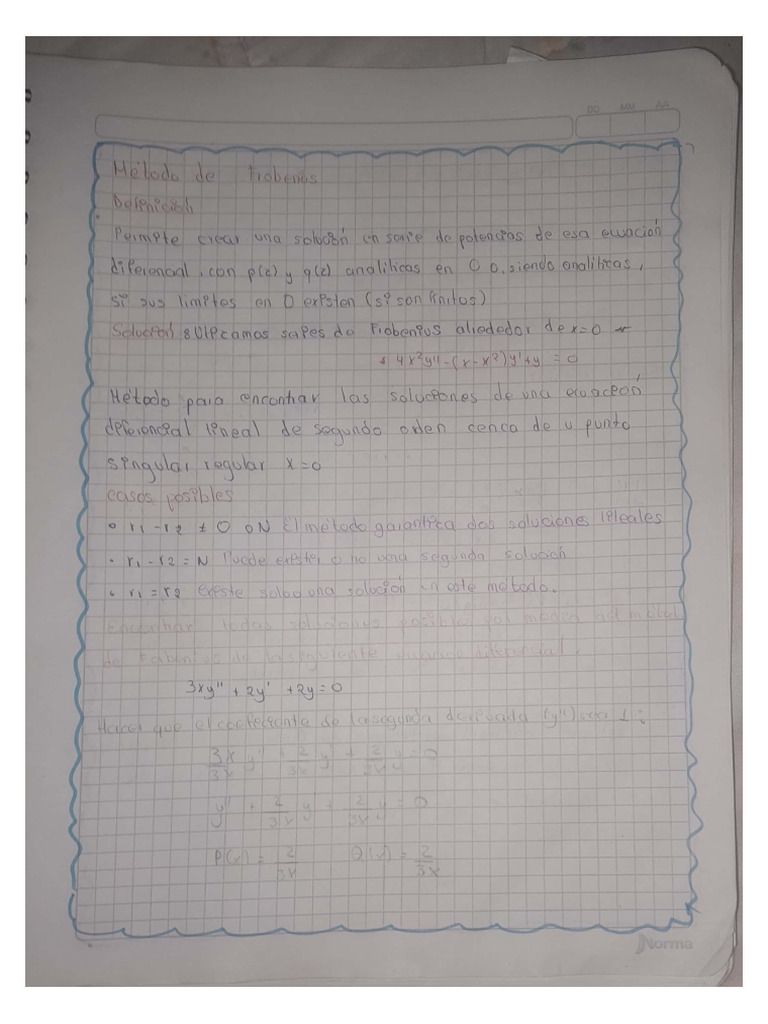 DD MM AA
Método de Frobenius
Definición
Permite crear una solución en serie de potencias de esa ecuación
diferencial, con p(z) y q(z) analíticas en 0 o, siendo analíticas,
si sus limites en 0 existen (si son finitos)
Solución : de Frobenius alrededor de x=0
4x²y''-(x-x²)y'+y = 0
Método para encontrar las soluciones de una ecuación
diferencial lineal de segundo orden cerca de u punto
singular regular x=0
casos posibles
• r₁ - r₂ ≠ 0 o N El método garantiza dos soluciones
• r₁ - r₂ = N Puede existir o no una segunda solución
• r₁ = r₂ Existe solo una solución en este método.
Encontrar todas soluciones posibles
de la siguiente diferencial.
3xy'' + 2y' + 2y = 0
Hacer que el coeficiente de la segunda derivada (y'') sea 1:
3x/3x y'' + 2/3x y' + 2/3x y = 0
y'' + 2/3x y' + 2/3x y = 0
P(x) = 2/3x Q(x) = 2/3x
Norma